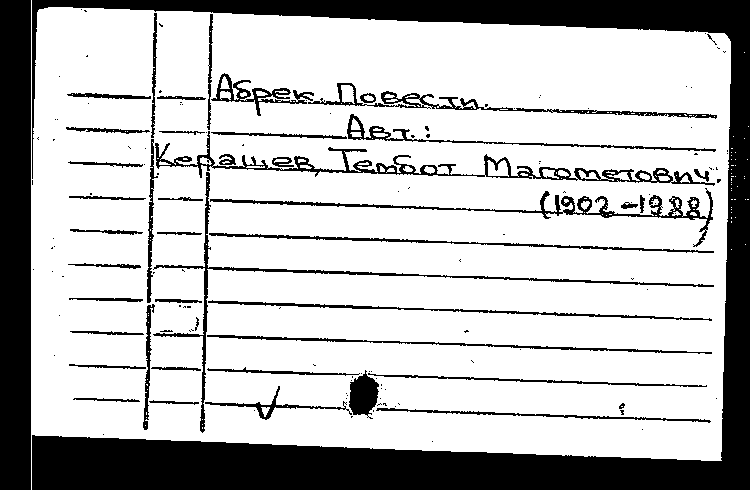 Абрек. Повести.
Авт.:
Керашев, Тембот Магометович.
(1902-1988)